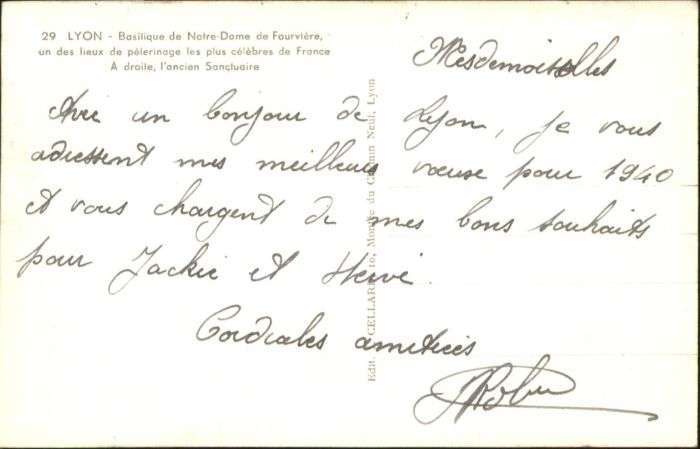 29 LYON - Basilique de Notre-Dame de Fourvière,
un des lieux de pélerinage les plus célèbres de France
A droite, l'ancien Sanctuaire
Mesdemoiselles
Avec un bonjour de Lyon, je vous
adressent mes meilleurs voeux pour 1940
et vous chargent de mes bons souhaits
pour Jackie et Hervé.
Cordiales amitiés
Edit. CELLARD, 10, Montée du Chemin Neuf, Lyon